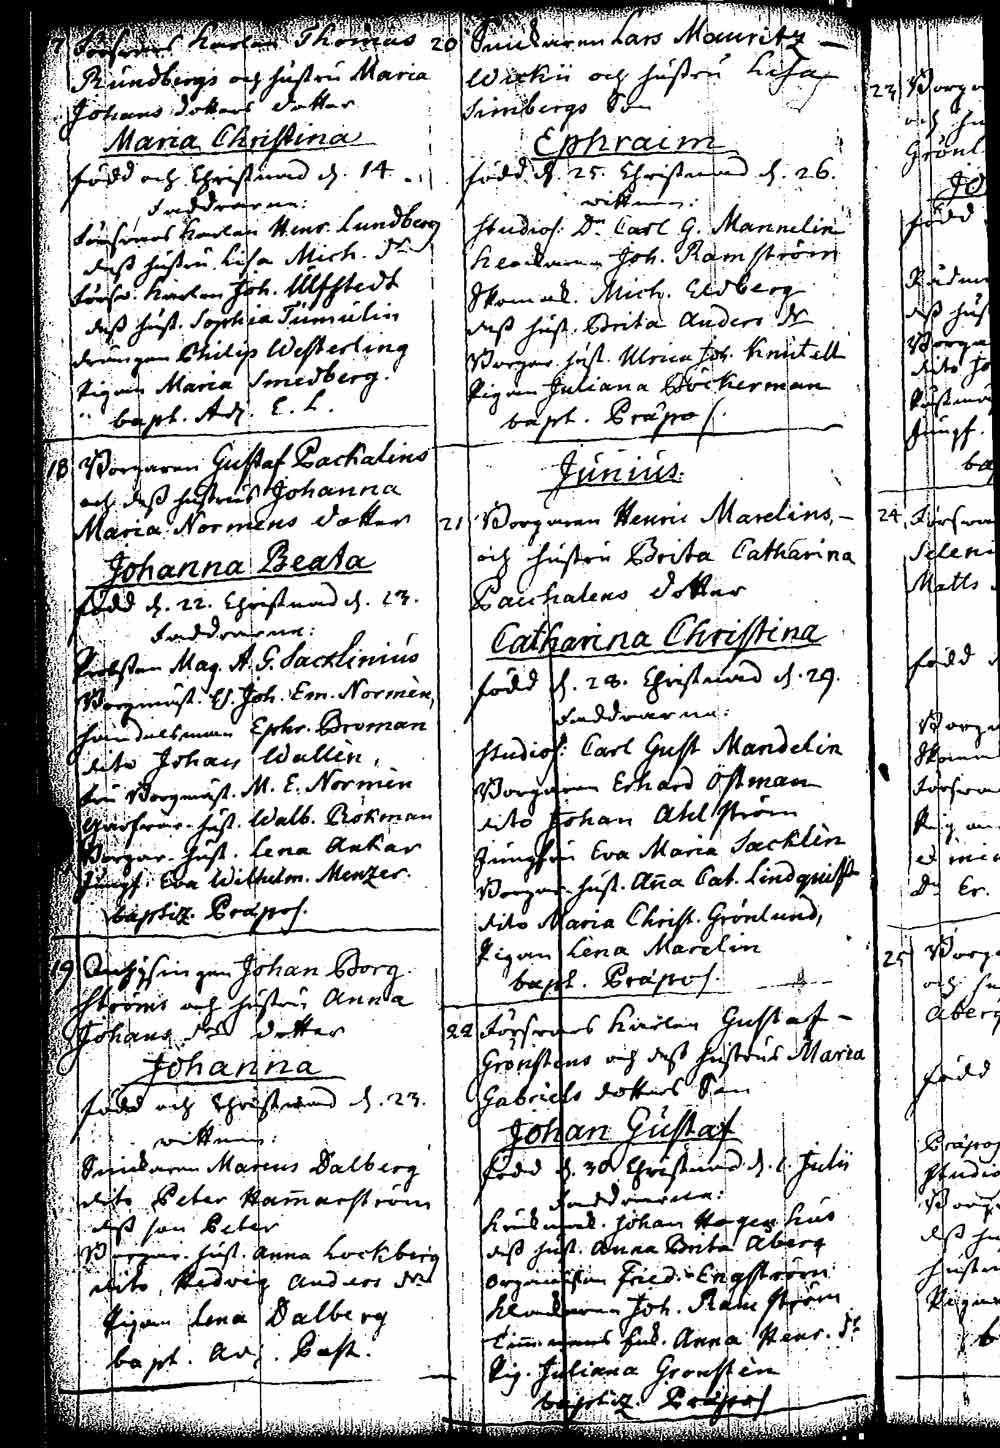 Försvars Karlen Thomas
Rundbergs och hustru Maria
Johans dotters dotter
Maria Christina
född och Christnad d. 14
Faddrarne:
Försvars Karlen Henr. Lundberg
dess hustru Lisa Mich. dr
Försv. Karlen Joh. Ulfstedt
dess hust. Sophia Tumulin
drängen Philip Westerling
Pigan Maria Smedberg.
bapt. Adj. E. L.
18 Borgaren Gustaf Pachalins
och dess hustrus Johanna
Maria Normens dotter
Johanna Beata
född d. 22. Christnad d. 23.
Faddrarne:
Probsten Mag. A. G. Sacklinius
Borgmäst. Joh. Em. Normèn,
Handelsman Ephr. Broman
dito Johan Wallèn,
Fru Borgmäst. M. E. Normèn
hust. Walb. Rökman
Borgar. hust. Lena Ankar
Jungf. Eva Wilhelm. Menzer.
baptiz. Præpos.
19 Johan Borg
ströms och hustru Anna
Johans drs dotter
Johanna
född och Christnad d. 23.
wittnen:
Smedaren Marcus Dalberg
dito Peter Ham̄arström
dess son Peter
Borgar. hust. Anna Lockberg
dito, Hedvig Anders dr
Pigan Lena Dalberg
bapt. Adj. Past.
20 Smedaren Lars Mauritz
Wickii och hustru Lisa
Simbergs Son
Ephraim
född d. 25. Christnad d. 26.
wittnen:
Studios. Dn Carl G. Mannelin
Klockaren Joh. Ramström
Skomak. Mich. Eedberg
dess hust. Brita Anders dr
Borgar. hust. Ulrica Joh. Knutell
Pigan Juliana Böckerman
bapt. Præpos.
Junius.
21 Borgaren Henric Marelins,
och hustru Brita Catharina
Paschalens dotter
Catharina Christina
född d. 28. Christnad d. 29.
Faddrarne:
Studios: Carl Gust Mandelin
Borgaren Erhard Östman
dito Johan Ahlström
Jungfru Eva Maria Sacklèn
Borgar. hust. An̄a Cat. Lindquist
dito Maria Christ. Grönlund,
Pigan Lena Marelin
bapt. Præpos.
22 Försvars Karlen Gustaf
Grönstens och dess hustrus Maria
Gabriels dotters Son
Johan Gustaf
född d. 30. Christnad d. 1. Julii
Faddrarne:
Johan Hagenhus
dess hust. Anna Brita Åberg
Organisten Fried. Engström
Klockaren Joh. Ramström
Anna Henr. dr
Pig. Juliana Gronstèn
baptiz. Præpos
23 Borga
och hu
Grönl
Jo
född
Rådm
dess hus
Borga
dito Jo
Jungf.
ba
24 Försva
Seleni
Matts
född
Borga
Skoma
Försva
Dn Er.
25 Borga
och hu
Åberg
född
Præpos
Studio
Borga
dess hu
hustru
Pigan
b